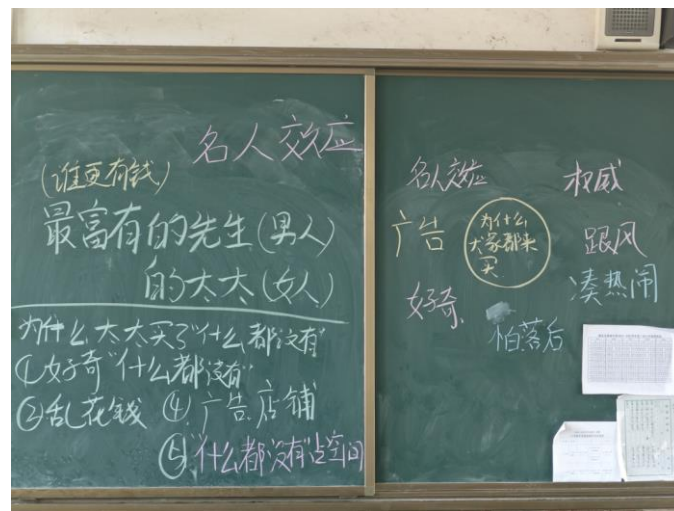 名人效应
(谁更有钱)
最富有的先生(男人)
的太太(女人)
为什么太太买了"什么都没有"
①好奇"什么都没有"
②乱花钱 ④广告.店铺
⑤"什么都没有"占空间
名人效应 权威
广告 为什么
大家都来
买
跟风
好奇 凑热闹
怕落后